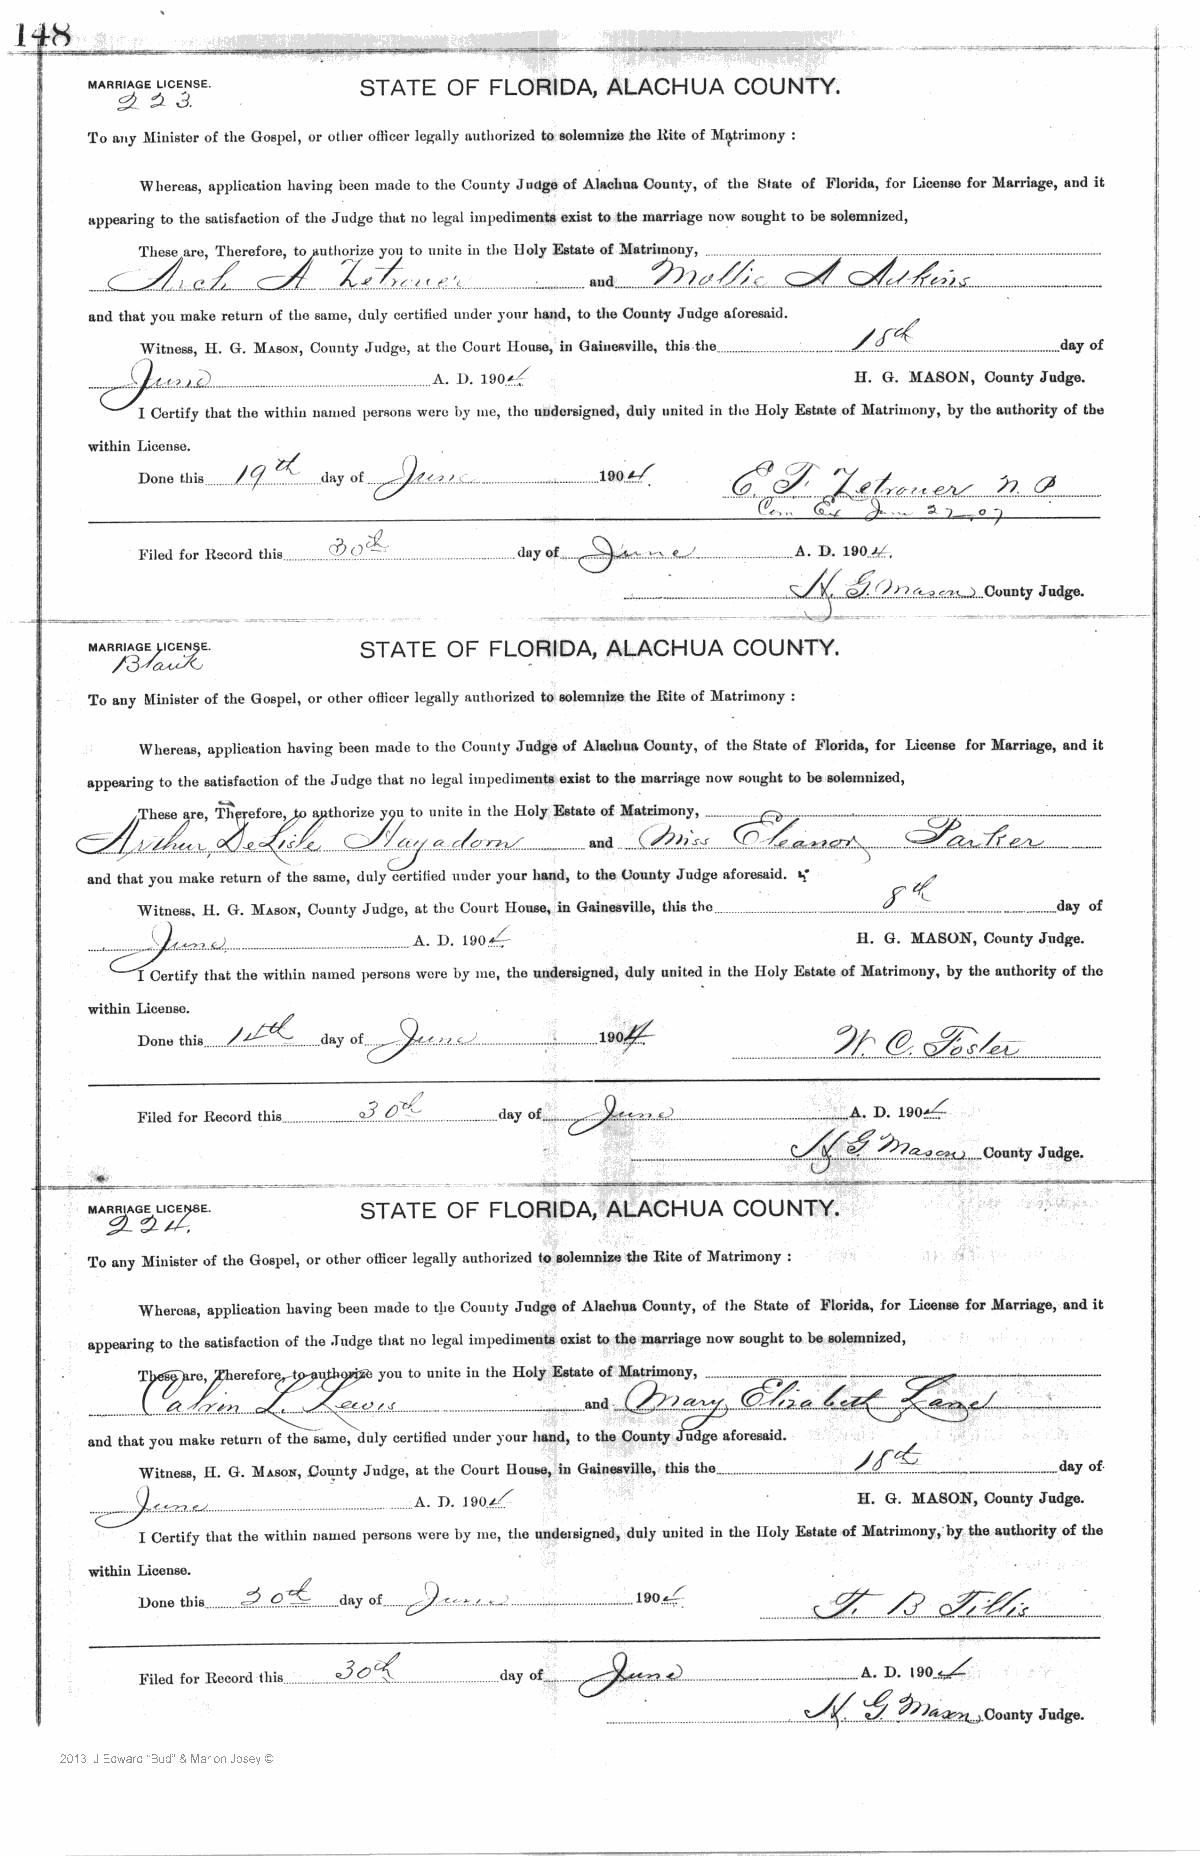 148
MARRIAGE LICENSE. STATE OF FLORIDA, ALACHUA COUNTY.
223.
To any Minister of the Gospel, or other officer legally authorized to solemnize the Rite of Matrimony :
Whereas, application having been made to the County Judge of Alachua County, of the State of Florida, for License for Marriage, and it
appearing to the satisfaction of the Judge that no legal impediments exist to the marriage now sought to be solemnized,
These are, Therefore, to authorize you to unite in the Holy Estate of Matrimony,
Arch A Zetrouer and Mollie A Adkins
and that you make return of the same, duly certified under your hand, to the County Judge aforesaid.
Witness, H. G. MASON, County Judge, at the Court House, in Gainesville, this the 18th day of
June A. D. 1904 H. G. MASON, County Judge.
I Certify that the within named persons were by me, the undersigned, duly united in the Holy Estate of Matrimony, by the authority of the
within License.
Done this 19th day of June 1904. E. T. Zetrouer N. P.
Com Ex June 27 07
Filed for Record this 30th day of June A. D. 1904.
H. G. Mason County Judge.
MARRIAGE LICENSE. STATE OF FLORIDA, ALACHUA COUNTY.
Blank
To any Minister of the Gospel, or other officer legally authorized to solemnize the Rite of Matrimony :
Whereas, application having been made to the County Judge of Alachua County, of the State of Florida, for License for Marriage, and it
appearing to the satisfaction of the Judge that no legal impediments exist to the marriage now sought to be solemnized,
These are, Therefore, to authorize you to unite in the Holy Estate of Matrimony,
Arthur DeLisle Hayadorn and Miss Eleanor Parker
and that you make return of the same, duly certified under your hand, to the County Judge aforesaid.
Witness, H. G. MASON, County Judge, at the Court House, in Gainesville, this the 8th day of
June A. D. 1904 H. G. MASON, County Judge.
I Certify that the within named persons were by me, the undersigned, duly united in the Holy Estate of Matrimony, by the authority of the
within License.
Done this 14th day of June 1904 W. C. Foster
Filed for Record this 30th day of June A. D. 1904
H G. Mason County Judge.
MARRIAGE LICENSE. STATE OF FLORIDA, ALACHUA COUNTY.
224.
To any Minister of the Gospel, or other officer legally authorized to solemnize the Rite of Matrimony :
Whereas, application having been made to the County Judge of Alachua County, of the State of Florida, for License for Marriage, and it
appearing to the satisfaction of the Judge that no legal impediments exist to the marriage now sought to be solemnized,
These are, Therefore, to authorize you to unite in the Holy Estate of Matrimony,
Calvin L. Lewis and Mary Elizabeth Lane
and that you make return of the same, duly certified under your hand, to the County Judge aforesaid.
Witness, H. G. MASON, County Judge, at the Court House, in Gainesville, this the 18th day of
June A. D. 1904 H. G. MASON, County Judge.
I Certify that the within named persons were by me, the undersigned, duly united in the Holy Estate of Matrimony, by the authority of the
within License.
Done this 30th day of June 1904 T. B Tillis
Filed for Record this 30th day of June A. D. 1904
H. G. Mason County Judge.
2013 J Edward "Bud" & Marion Josey ©